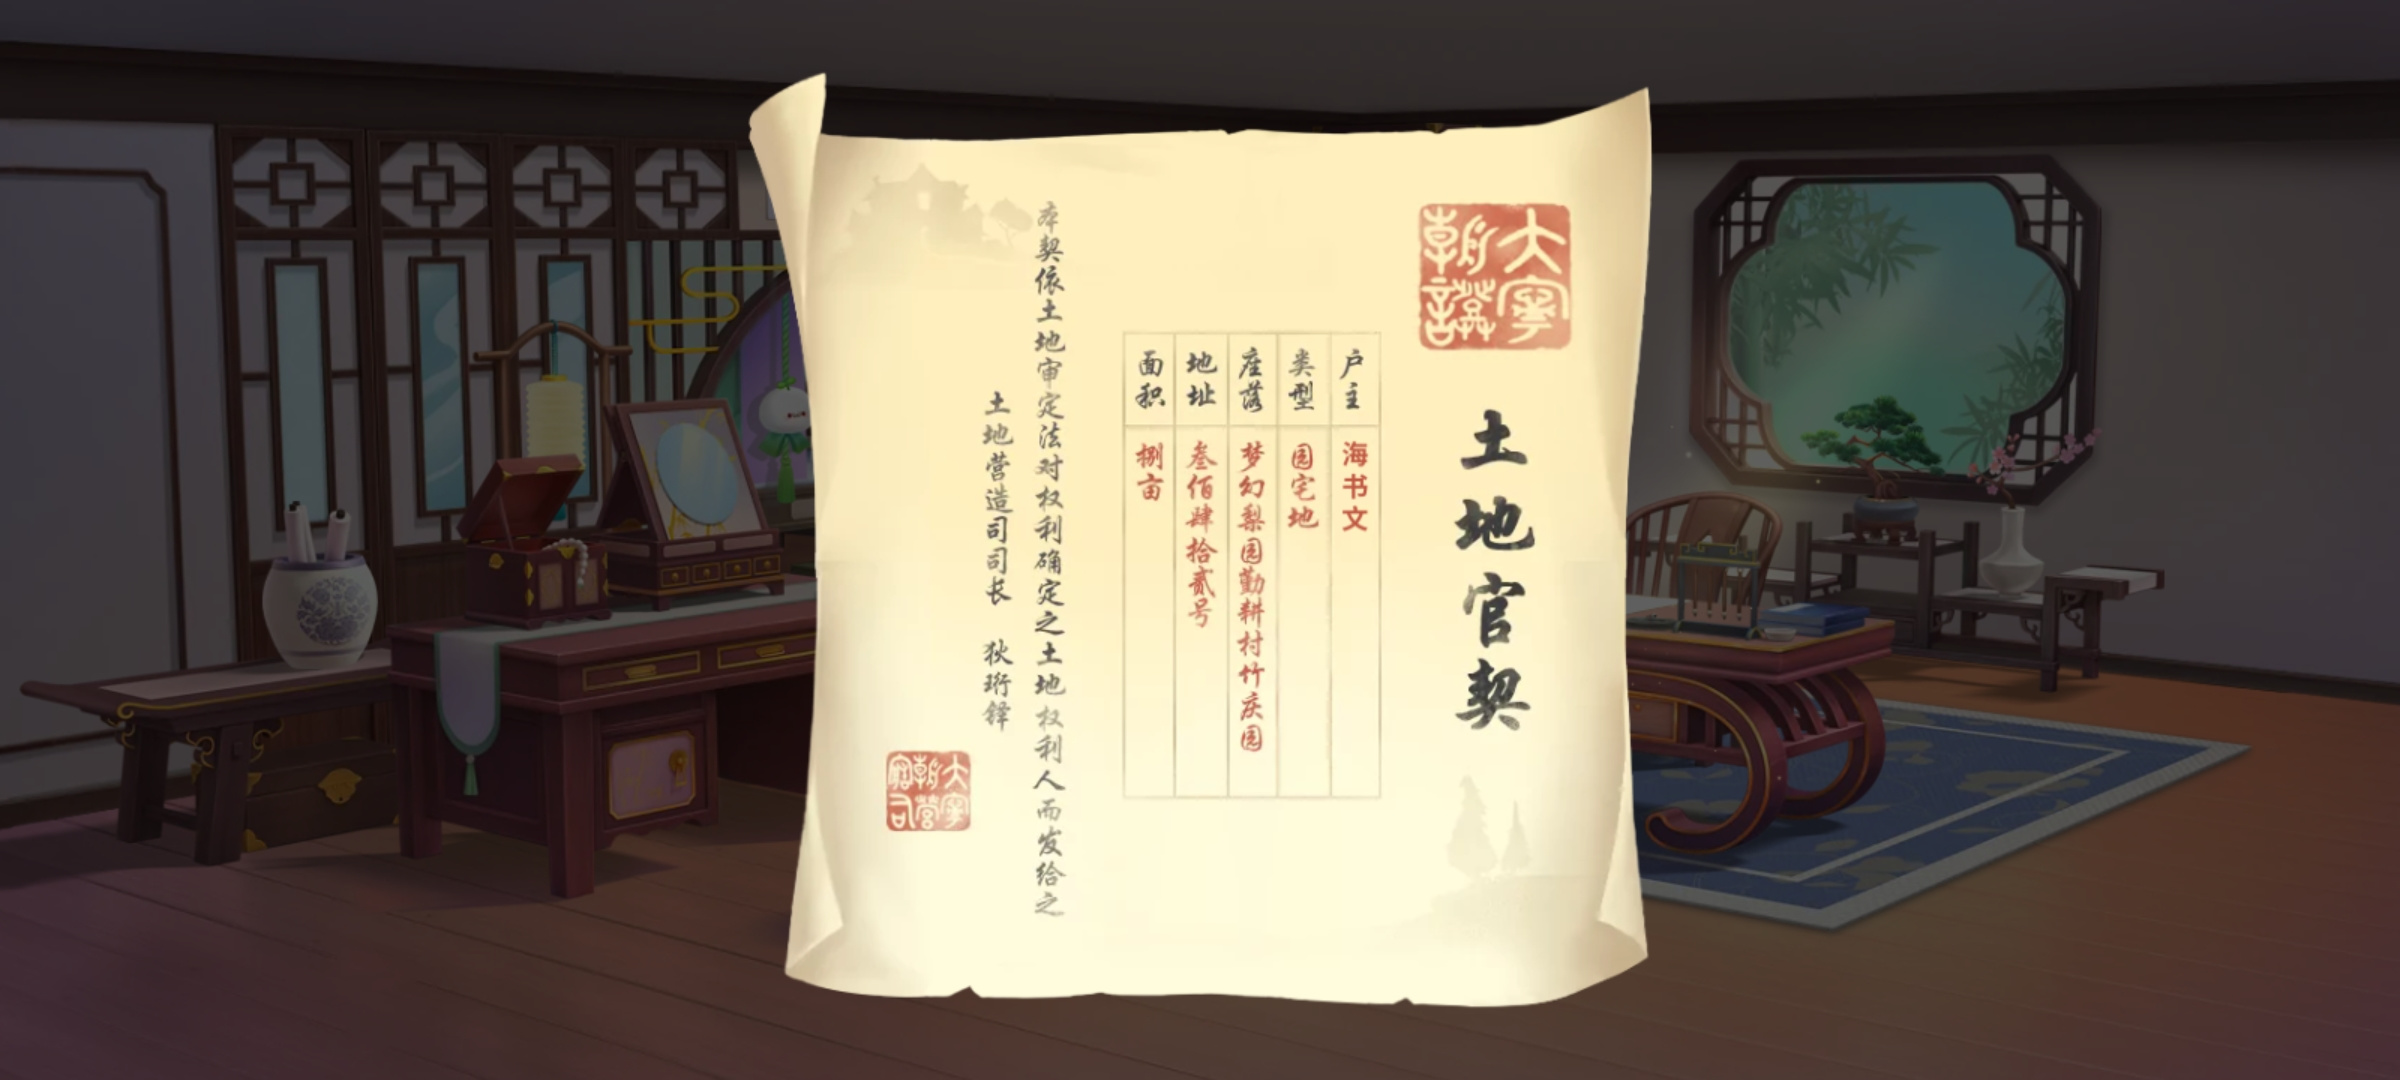 大寧朝證
土地官契
户主 海书文
类型 园宅地
座落 梦幻梨园勤耕村竹庆园
地址 叁佰肆拾贰号
面积 捌亩
本契依土地审定法对权利确定之土地权利人而发给之
土地营造司司长 狄珩铎
大寧朝營寤司